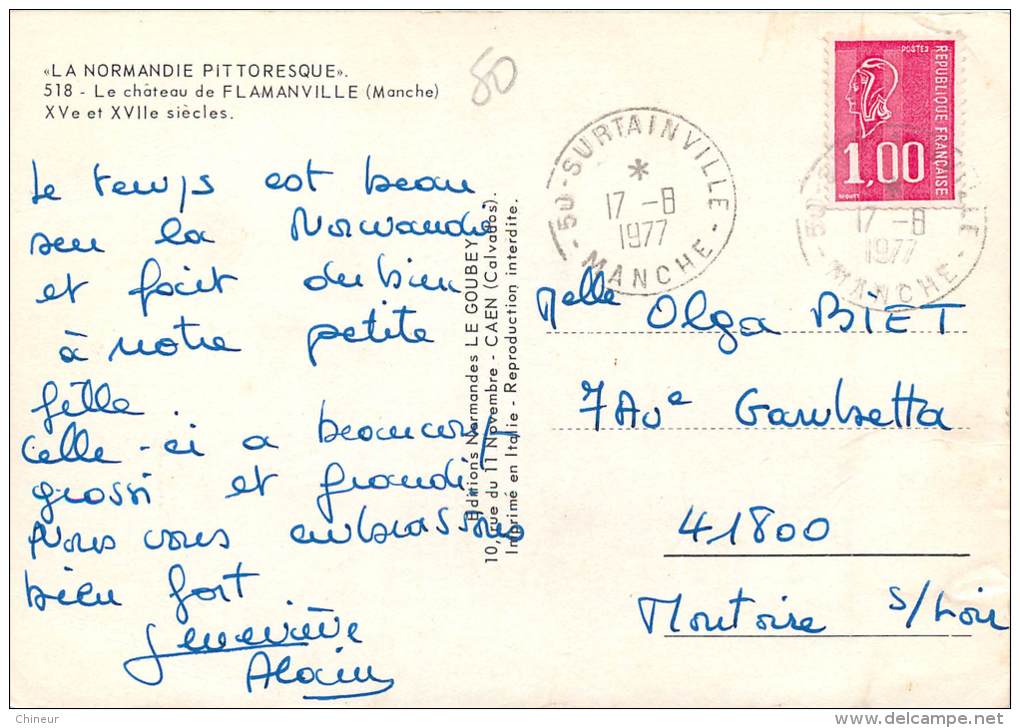 «LA NORMANDIE PITTORESQUE».
518 - Le château de FLAMANVILLE (Manche)
XVe et XVIIe siècles.
50
Le temps est beau
sur la Normandie
et fait du bien
à notre petite
fille.
Celle-ci a beaucoup
grossi et grandi.
Nous vous embrassons
bien fort
Geneviève
Alain
Editions Normandes LE GOUBEY
10, rue du 11 Novembre - CAEN (Calvados).
Imprimé en Italie - Reproduction interdite.
50 - SURTAINVILLE
*
17 -8
1977
- MANCHE -
POSTES
REPUBLIQUE FRANÇAISE
1,00
17 -8
1977
- MANCHE -
Melle Olga BIET
7 Ave Gambetta
41800
Montoire s/Loir
Chineur
delcampe.net